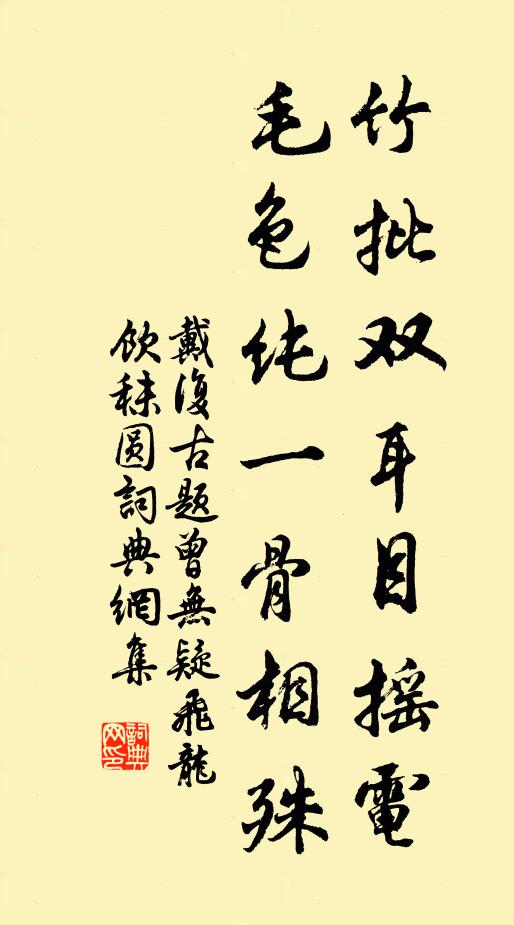 竹批双耳目摇電
毛色纯一骨相殊
戴復古题曾無疑飛龍
飲秣圆詞典網集
詞典网印